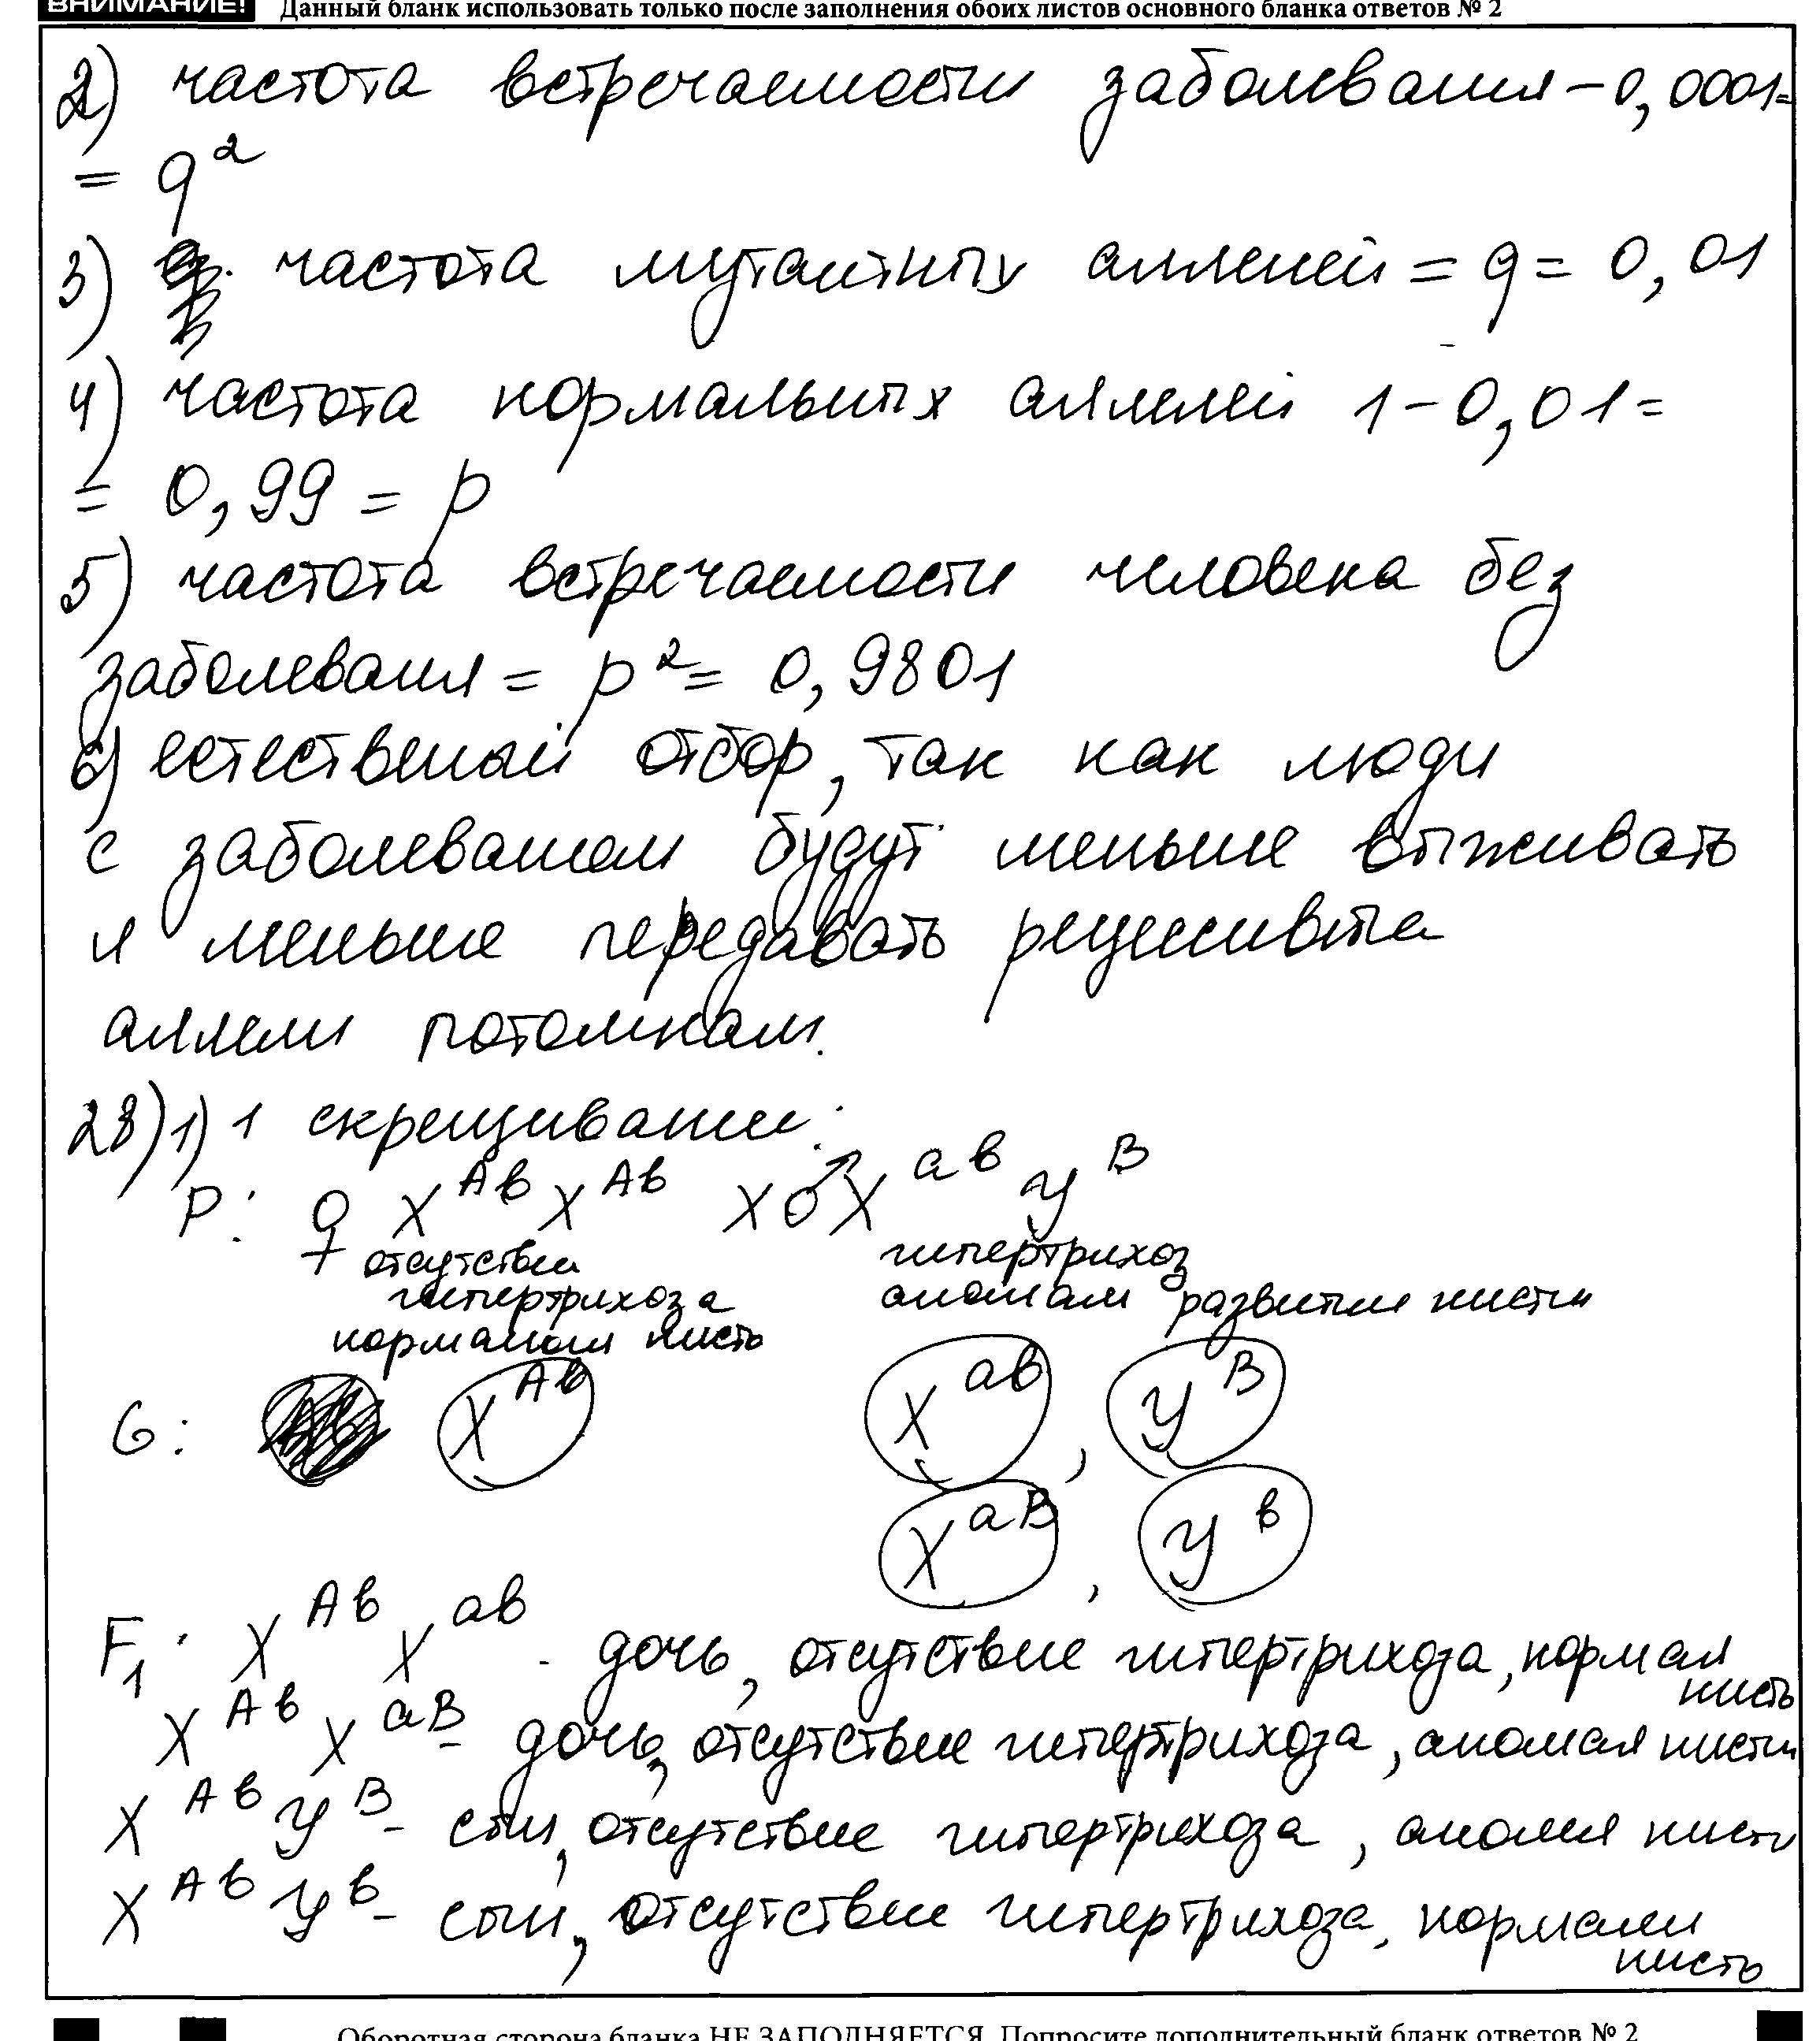 ВНИМАНИЕ! Данный бланк использовать только после заполнения обоих листов основного бланка ответов № 2
2) частота встречаемости заболевания – 0,0001=
= q²
3) частота мутантных аллелей = q = 0,01
4) частота нормальных аллелей 1 – 0,01 =
= 0,99 = p
5) частота встречаемости человека без
заболевания = p² = 0,9801
6) естественный отбор, так как люди
с заболеванием будут меньше выживать
и меньше передавать рецессивные
аллели потомкам.
28) 1) 1 скрещивание:
P: ♀ X^Ab X^Ab x ♂ X^ab Y^B
отсутствие гипертрихоз
гипертрихоза аномалии развития кисти
нормальная кисть
G: X^Ab X^ab , Y^B
X^aB , Y^b
F₁: X^Ab X^ab - дочь, отсутствие гипертрихоза, нормал
кисть
X^Ab X^aB - дочь, отсутствие гипертрихоза, аномал кисти
X^Ab Y^B - сын, отсутствие гипертрихоза, аномал кисти
X^Ab Y^b - сын, отсутствие гипертрихоза, нормальн
кисть
Оборотная сторона бланка НЕ ЗАПОЛНЯЕТСЯ. Попросите дополнительный бланк ответов № 2